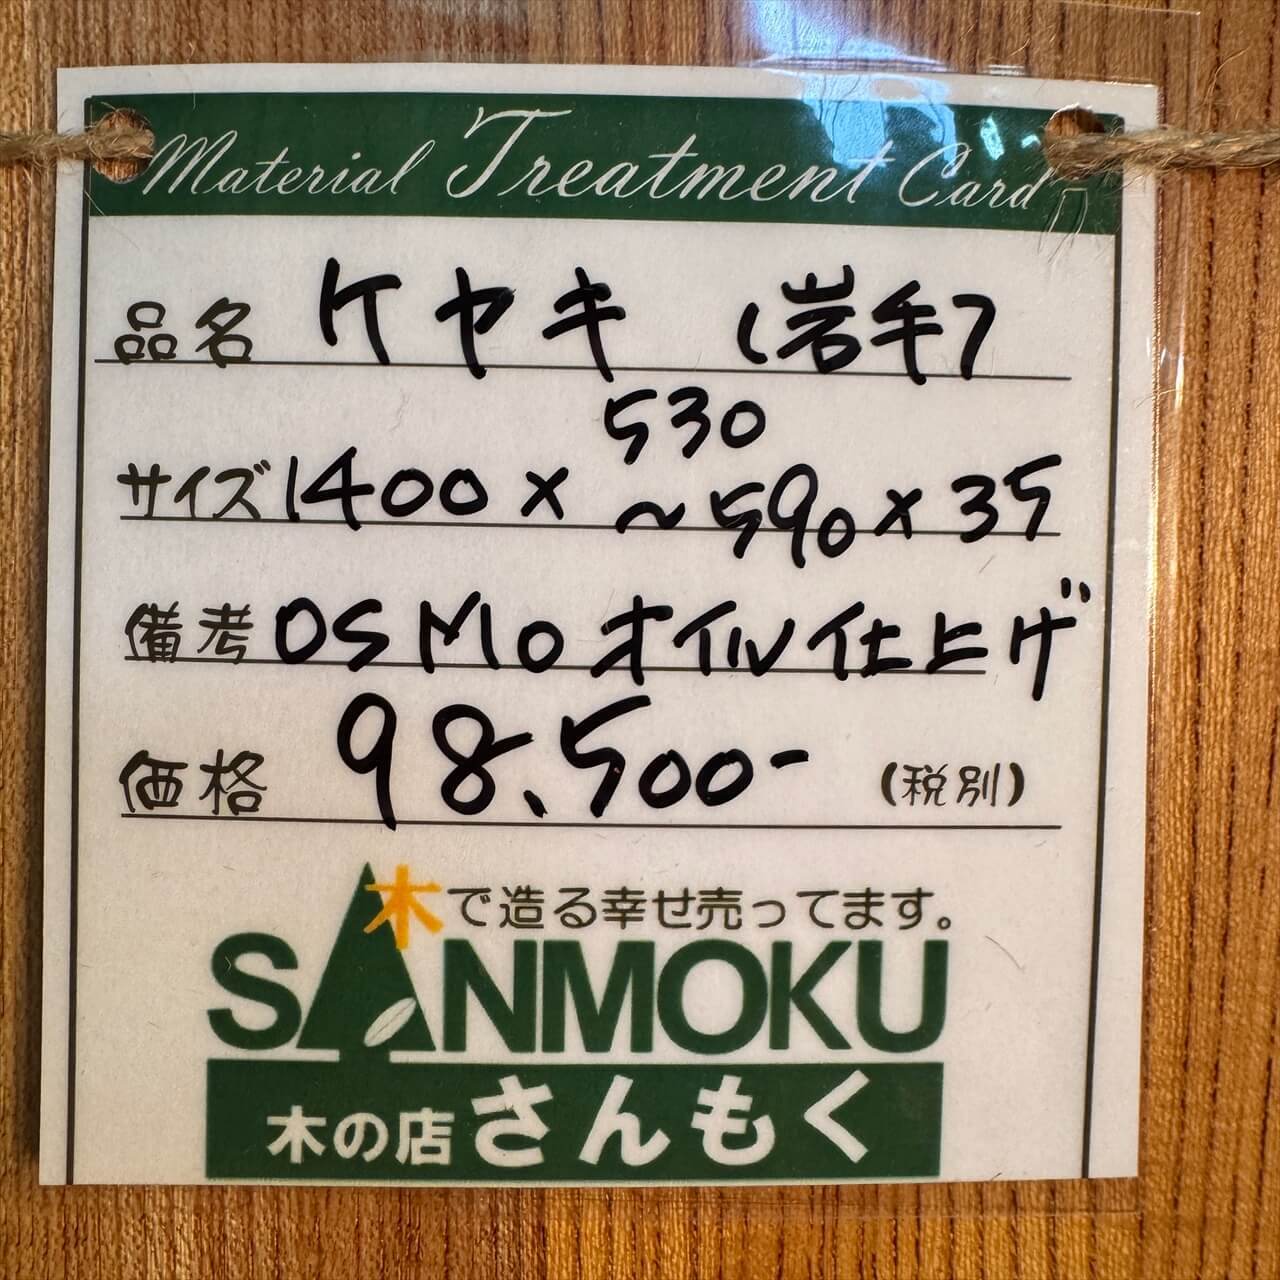 Material Treatment Card
品名 ケヤキ (岩手)
サイズ 1400 × 530 ~590 × 35
備考 OSMO オイル仕上げ
価格 98,500- (税別)
木で造る幸せ売ってます。
SANMOKU
木の店 さんもく